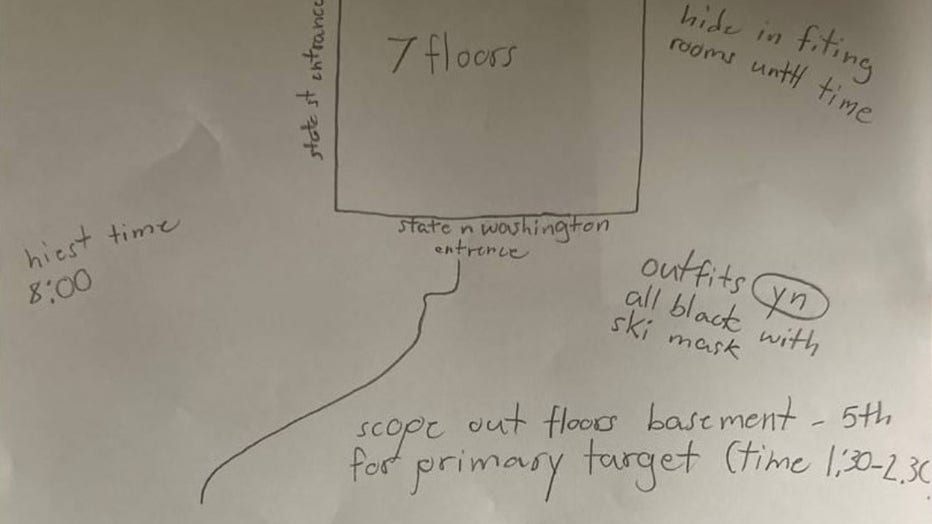 state st entrance
7 floors
hide in fiting
rooms until time
hiest time
8:00
state n washington
entrence
outfits yn
all black with
ski mask
scope out floors basement - 5th
for primary target (time 1:30-2:30